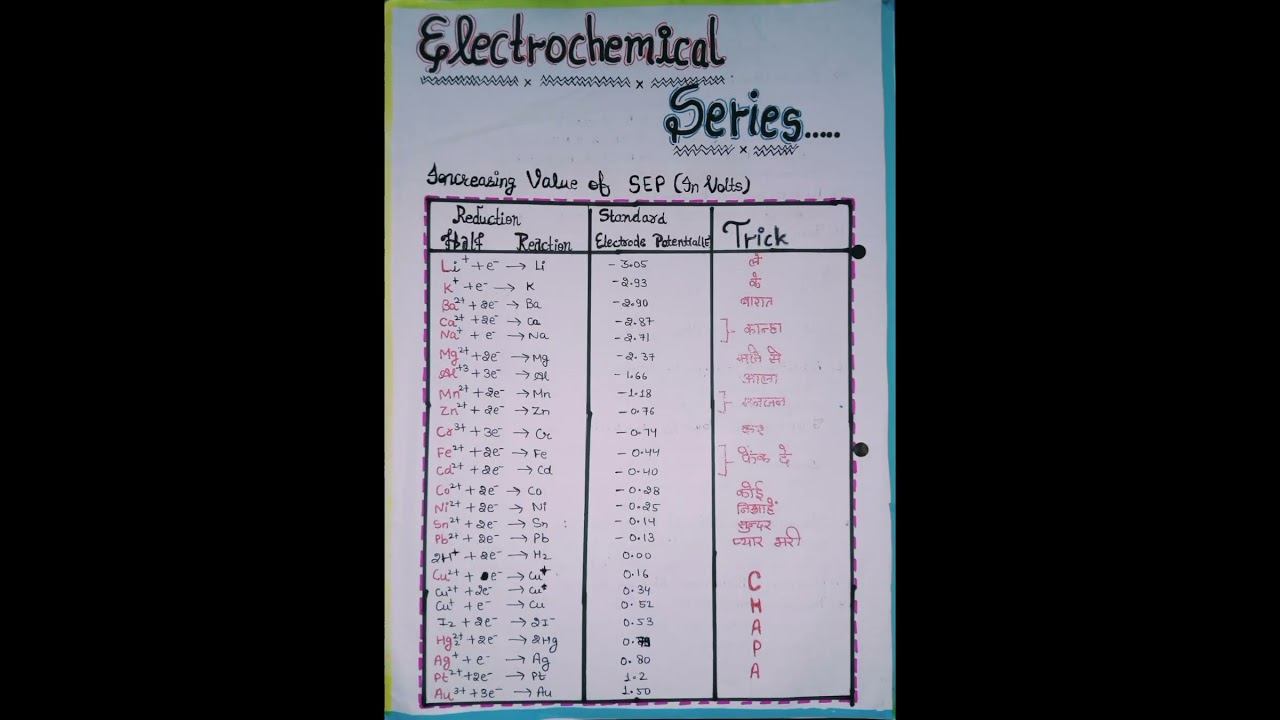 Electrochemical
Series.....
Increasing Value of SEP (In Volts)
Reduction Half Reaction Standard Electrode Potential Trick
Li⁺ + e⁻ → Li − 3.05 ले
K⁺ + e⁻ → K − 2.93 के
Ba²⁺ + 2e⁻ → Ba − 2.90 बारात
Ca²⁺ + 2e⁻ → Ca − 2.87 कान्हा
Na⁺ + e⁻ → Na − 2.71
Mg²⁺ + 2e⁻ → Mg − 2.37 से
Al⁺³ + 3e⁻ → Al − 1.66 आला
Mn²⁺ + 2e⁻ → Mn − 1.18
Zn²⁺ + 2e⁻ → Zn − 0.76
Cr³⁺ + 3e⁻ → Cr − 0.74 कर
Fe²⁺ + 2e⁻ → Fe − 0.44 फेंक दे
Cd²⁺ + 2e⁻ → Cd − 0.40
Co²⁺ + 2e⁻ → Co − 0.28 कोई
Ni²⁺ + 2e⁻ → Ni − 0.25 निगाहें
Sn²⁺ + 2e⁻ → Sn − 0.14 सुन्दर
Pb²⁺ + 2e⁻ → Pb − 0.13 प्यार भरी
2H⁺ + 2e⁻ → H₂ 0.00
Cu²⁺ + e⁻ → Cu⁺ 0.16 C
Cu²⁺ + 2e⁻ → 0.34
Cu⁺ + e⁻ → Cu 0.52 H
I₂ + 2e⁻ → 2I⁻ 0.53 A
Hg₂²⁺ + 2e⁻ → 2Hg P
Ag⁺ + e⁻ → Ag 0.80 A
Pt²⁺ + 2e⁻ → Pt 1.2
Au³⁺ + 3e⁻ → Au 1.50